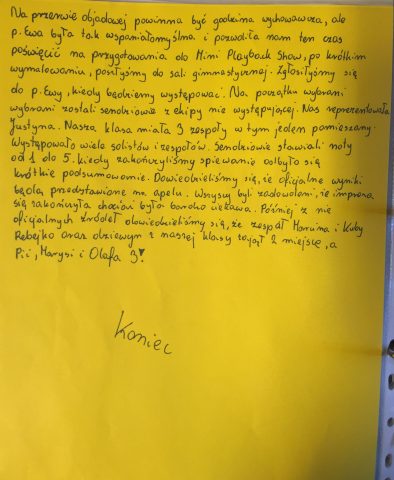 Na przerwie obiadowej powinna być godzina wychowawcza, ale
p. Ewa była tak wspaniałomyślna i pozwoliła nam ten czas
poświęcić na przygotowania do Mimi Playback Show, po krótkim
wymalowaniu, poszłyśmy do sali gimnastycznej. Zgłosiłyśmy się
do p. Ewy, kiedy będziemy występować. Na początku wybrani
wybrani zostali sendziowie z ekipy nie występującej. Nas reprezentowała
Justyna. Nasza klasa miała 3 zespoły w tym jeden pomieszany.
Występowało wiele solistów i zespołów. Sendziowie stawiali noty
od 1 do 5. kiedy zakończyliśmy śpiewanie odbyło się
krótkie podsumowanie. Dowiedzieliśmy się, że oficjalne wyniki
będą przedstawione na apelu. Wszyscy byli zadowoleni, że impreza
się zakończyła chociaż była bardzo ciekawa. Później z nie
oficjalnych źródeł dowiedzieliśmy się, że zespół Marcina i Kuby
Rebejko oraz dziewyn z naszej klasy zajął 2 miejsce, a
Pici, Marysi i Olafa 3!
Koniec